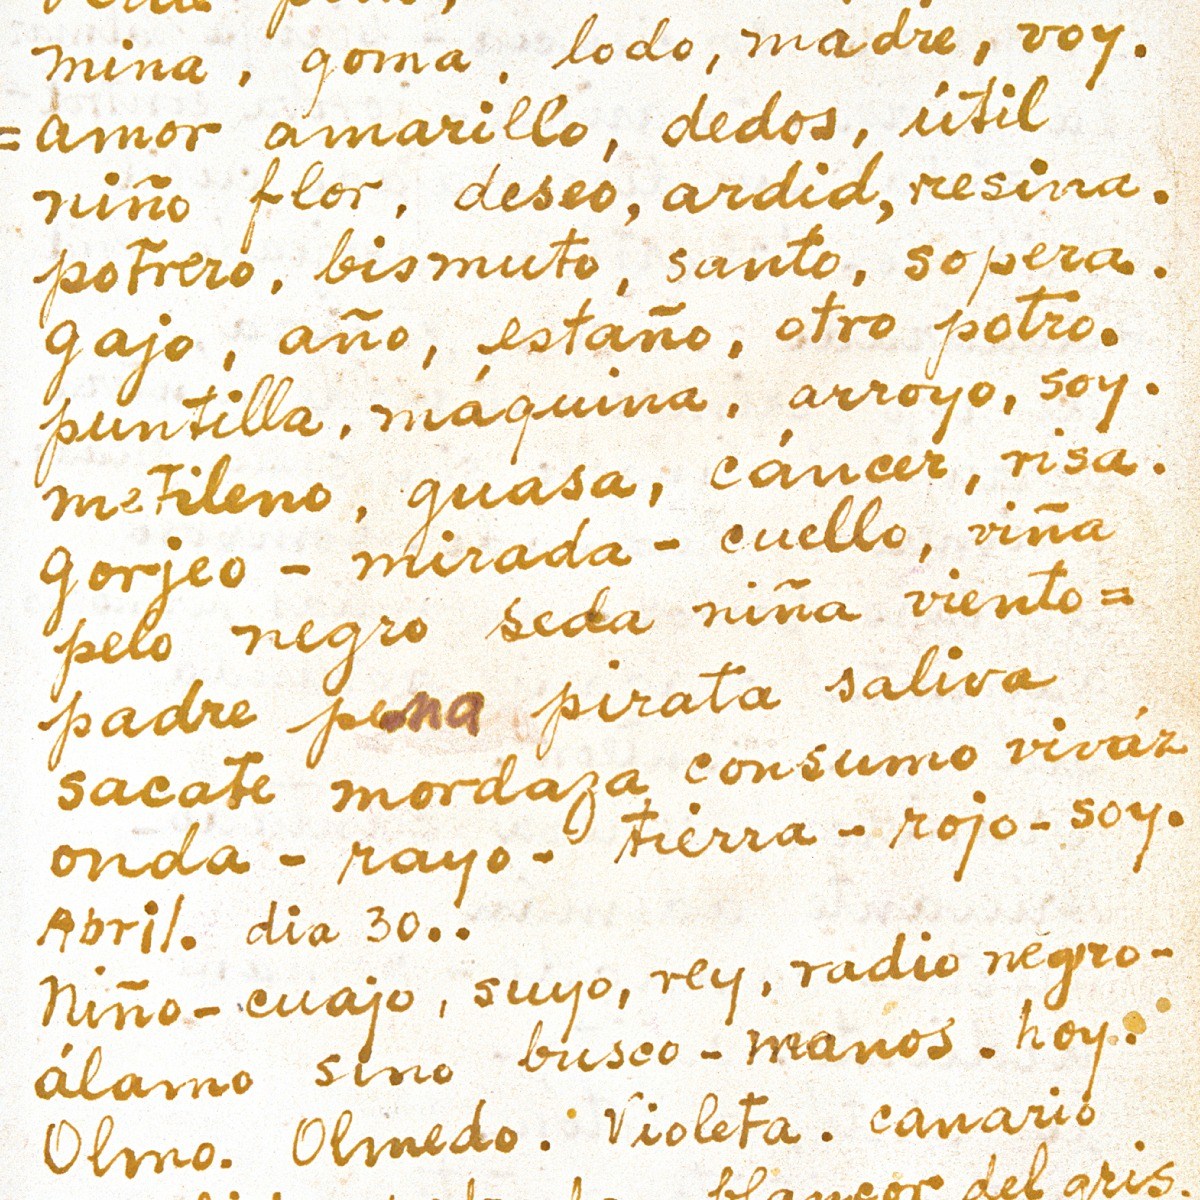 mina, goma, lodo, madre, voy.
=amor amarillo, dedos, útil
niño flor, deseo, ardid, resina.
potrero, bismuto, santo, sopera.
gajo, año, estaño, otro potro.
puntilla, máquina, arroyo, soy.
metileno, guasa, cáncer, risa.
gorjeo - mirada - cuello, viña
pelo negro seda niña viento=
padre pena pirata saliva
sacate mordaza consumo viváz
onda - rayo - tierra - rojo - soy.
Abril. dia 30..
Niño - cuajo, suyo, rey, radio negro -
álamo sino busco - manos. hoy.
Olmo. Olmedo. Violeta. canario
blancor del gris.